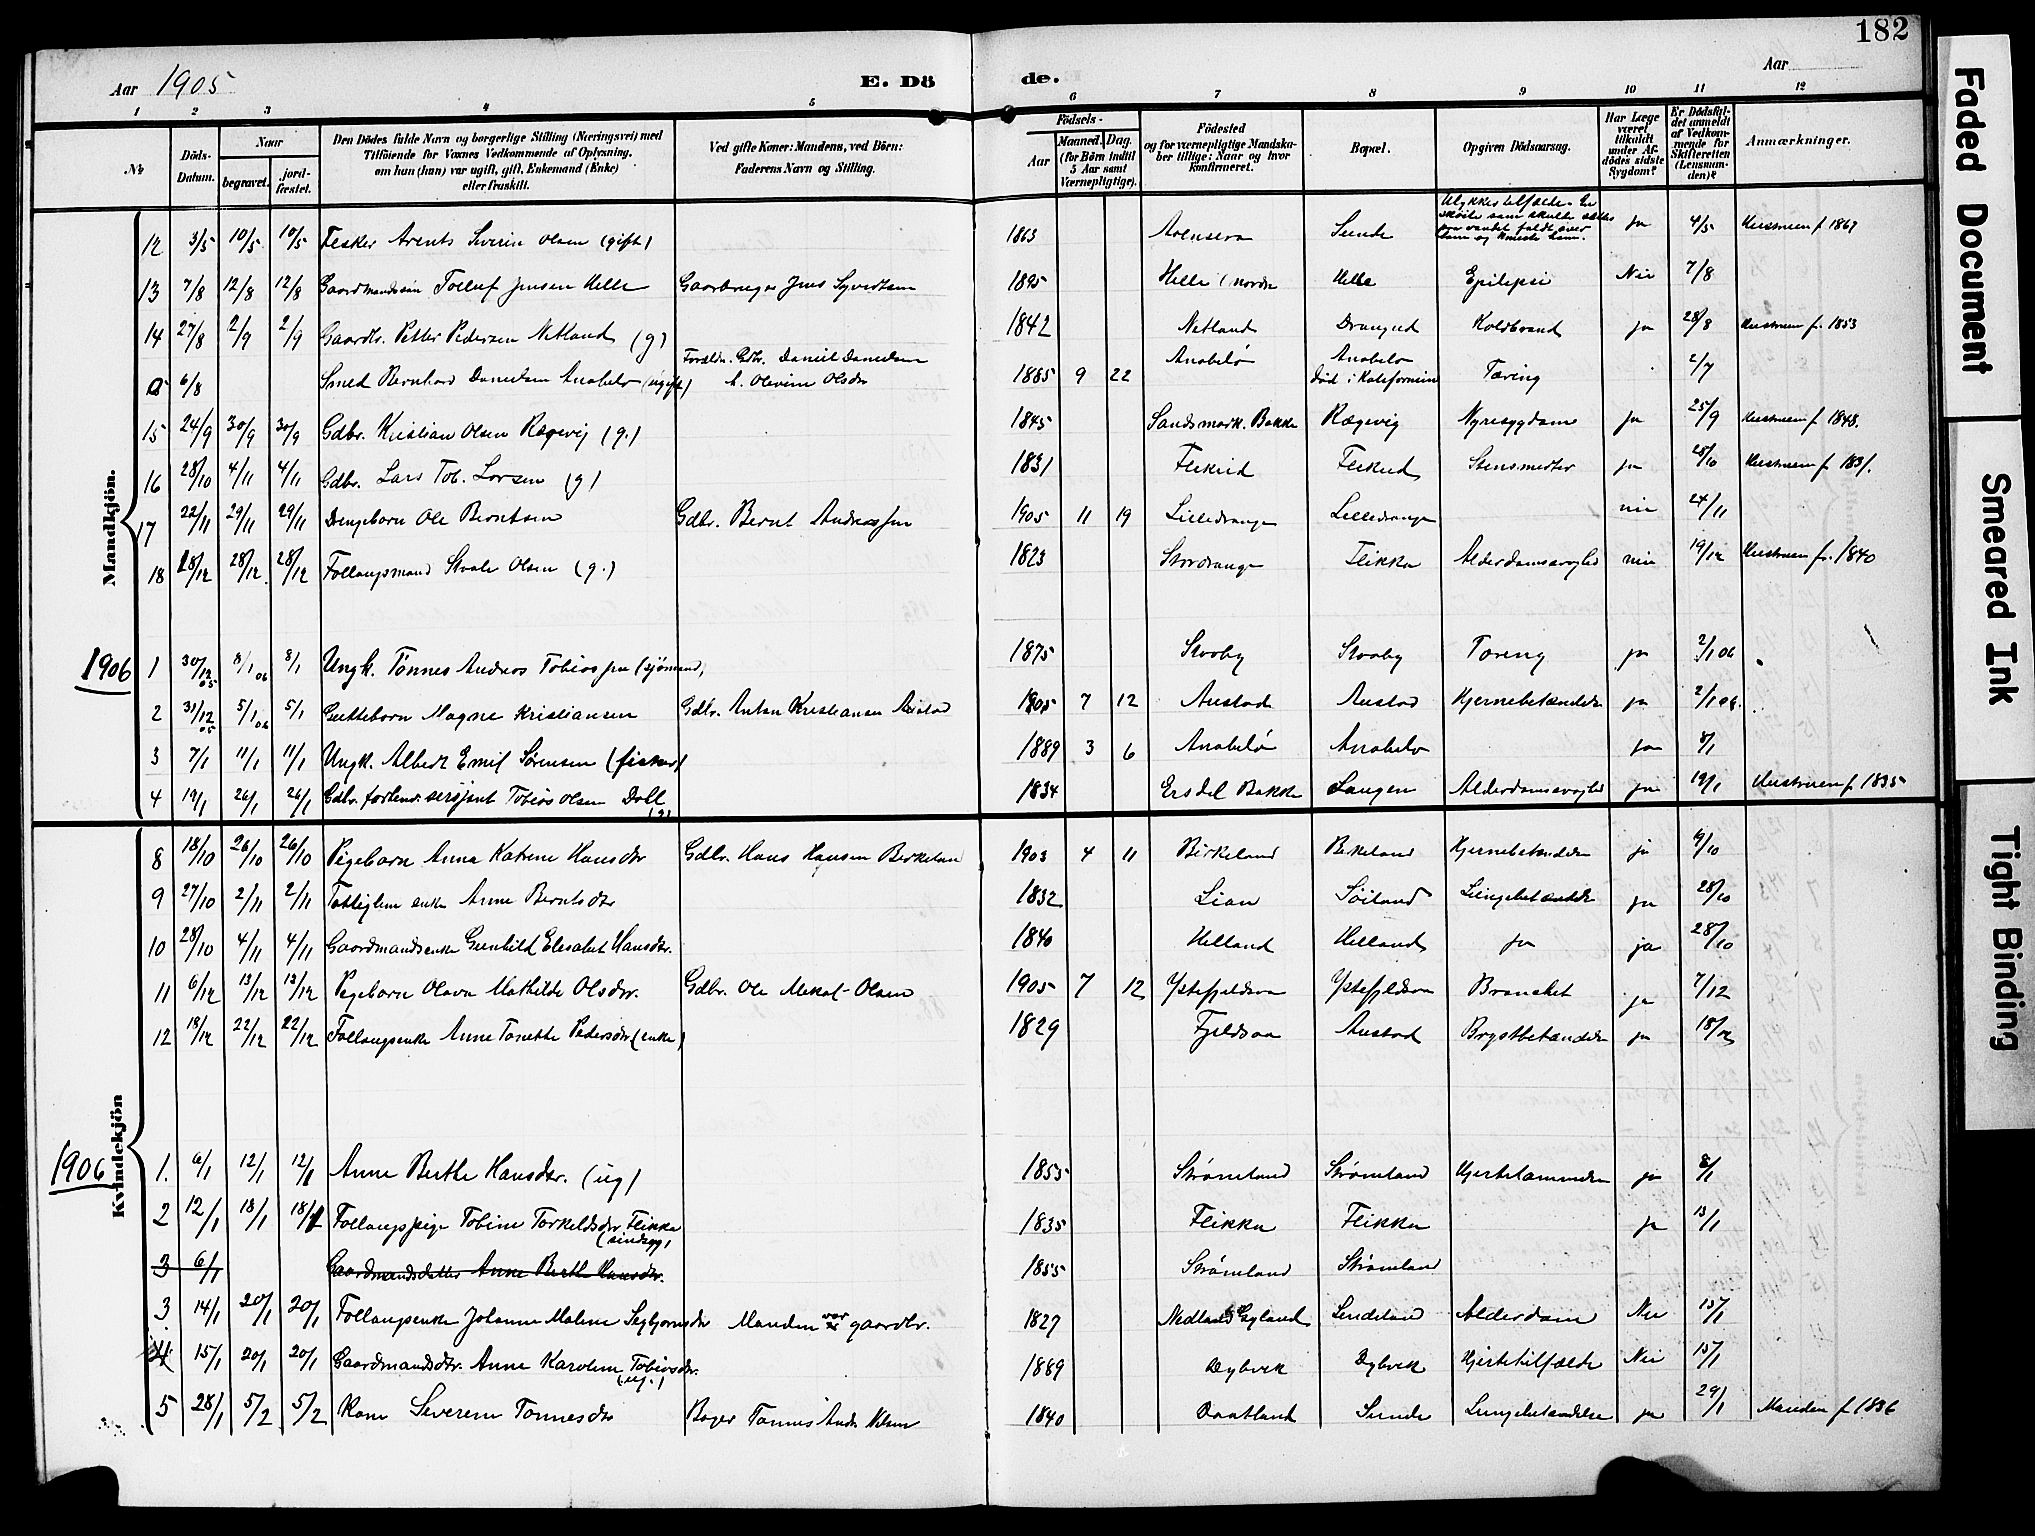 182
Aar 1905 E. Dö
de. Aar
1 2 3 4 5 6 7 8 9 10 11 12
№ Döds-Datum. Naar begravet. jord-fæstet. Den Dödes fulde Navn og borgerlige Stilling (Næringsvei) med Tilföiende for Voxnes Vedkommende af Oplysning, om han (hun) var ugift, gift, Enkemand (Enke) eller fraskilt. Ved gifte Koner: Mandens, ved Börn: Faderens Navn og Stilling.
Födsels- Aar Maaned. Dag. (for Börn indtil 5 Aar samt Værnepligtige). Födested og for værnepligtige Mandskaber tillige: Naar og hvor konfirmeret. Bopæl. Opgiven Dödsaarsag. Har Læge været tilkaldt under Afdödes sidste Sygdom? Er Dödsfaldet anmeldt af Vedkommende for Skifteretten (Lensmanden)? Anmærkninger.
Mandkjön.
12 3/5 10/5 10/5 Fisker Arents Severin Olsen (gift) 1863 Sunde ja 4/5 Hustruen f 1867
13 7/8 12/8 12/8 Gaardmandssøn Tollef Jensen Helle Gaardbruger Jens Syvertsen 1895 Helle (nordre Helle Epilepsi Nei 7/8
14 27/8 2/9 2/9 Gaardbr. Petter Pedersen Netland (g) 1842 Netland Drangeid Koldbrand ja 28/8 Hustruen f. 1853
0 6/8 Smed Bernhard Danielsen Anabelø (ugift) Foræld. Gdbr. Daniel Danielsen h. Olevine Olsdr 1885 9 22 Anabelø Anabelø død i Kalifornien Tæring 2/7
15 24/9 30/9 30/9 Gdbr. Kristian Olsen Rægevig (g.) 1845 Sandsmark. Bakke Rægevig Nyresygdom ja 25/9 Hustruen f 1848.
16 28/10 4/11 4/11 Gdbr. Lars Tob. Larsen (g) 1831 Fleskeid Stensmerter ja 28/10 Hustruen f 1831.
17 22/11 29/11 29/11 Drengebarn Ole Berntsen Gdbr. Bernt Andreassen 1905 11 19 Lilledrange Lilledrange nei 24/11
18 18/12 28/12 28/12 Follaugsmand Staale Olsen (g.) 1823 Stordrange Fleikka Alderdomsavaghed nei 19/12 Hustruen fr. 1840
1906 1 30/12 05 8/1 06 8/1 Ungk. Tønnes Andreas Tobiassen (sjømand) 1875 Skoby Skoby Tæring ja 2/1 06
2 31/12 05 5/1 06 5/1 Gutteborn Magne Kristiansen Gdbr. Anton Kristiansen Austad 1905 7 12 Austad Austad Hjernebetændelse ja 2/1 06.
3 7/1 11/1 11/1 Ungk. Albert Emil Sørensen (fisker) 1889 3 6 Anabelø Anabelø ja 8/1
4 19/1 26/1 26/1 Gdbr. forhend. sersjant Tobias Olsen Doll (g) 1834 Ersdal Bakke Laugen Alderdomsavaghed ja 19/1 Hustruen f 1835
Kvindekjön
8 18/10 26/10 26/10 Pigebarn Anna Katrine Hansdtr Gdbr. Hans Hansen Birkeland 1903 4 11 Birkeland Birkeland Hjernebetændelse ja 19/10
9 27/10 2/11 2/11 Fattiglem enke Anne Berntsdtr 1832 Lian Søiland Lungebetændelse ja 28/10
10 28/10 4/11 4/11 Gaardmandsenke Gunhild Elisabet Hansdtr. 1840 Helland Helland ja ja 28/10
11 6/12 13/12 13/12 Pigebarn Olava Mathilde Olsdtr. Gdbr. Ole Mekal Olsen 1905 7 12 Ystefjeldsaa Ystefjeldsaa Bronchit ja 7/12
12 18/12 22/12 22/12 Follaugsenke Anne Tonette Pedersdtr (enke) 1829 Fjeldsaa Austad Brystbetændelse ja 18/12
1906 1. 6/1 12/1 12/1 Anne Berthe Hansdtr. (ug) 1855 Strømland Strømland Hjertelammelse ja 8/1
2 12/1 18/1 18/1 Follaugspige Tobine Torkeldsdtr Fleikka (sindsyg) 1835 Fleikka Fleikka ja 13/1
3 6/1 Gaardmandsdatter Anne Berthe Hansdtr. 1855 Strømland Strømland
3 14/1 20/1 20/1 Follaugsenke Johanne Malene Segbjørnsdtr Manden var gaardbr. 1827 Nedland Gyland Sendeland Alderdom Nei 15/1
4 15/1 20/1 20/1 Gaardmandsdtr. Anne Karoline Tobiasdtr. (ug.) 1889 Dybvik Dybvik Hjertetilfælde Nei 15/1
5 28/1 5/2 5/2 Kone Severine Tonnesdtr Bager Tønnes Andr 1840 Sunde Lungebetændelse ja 29/1 Manden f 1836
Faded Document
Smeared Ink
Tight Binding